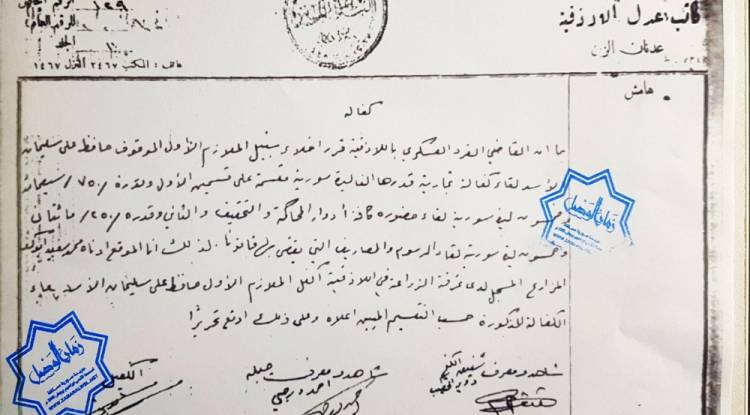 كاتب عدل اللاذقية
عدنان الزين
الرقم العام
الجلد
هاتف: المكتب ٢٤٦٧ المنزل ١٤٦٧
هامش
كفالة
بما ان القاضي الفرد العسكري باللاذقية قرر اخلاء سبيل الملازم الأول الموقوف حافظ علي سليمان
الأسد لقاء كفالة تجارية قدرها الف ليرة سورية مقسمة على قسمين الأول وقدره /٧٥٠/ سبعمائة
وخمسون ليرة سورية لقاء حضوره كافة أدوار المحاكمة والتحقيق والثاني وقدره /٢٥٠/ مائتان
وخمسون ليرة سورية لقاء الرسوم والمصاريف التي يقضى بها قانونا. لذلك انا الموقع ادناه محمد سعيد
المزارع المسجل لدى غرفة الزراعة في اللاذقية أكفل الملازم الأول حافظ علي سليمان الأسد بمبلغ
الكفالة المذكورة حسب التقسيم المبين اعلاه وعلى ذلك اوقع تحريرا
شاهد ومعرف
شاهد ومعرف جبله
الكفيل
زمان الوصل
زمان الوصل